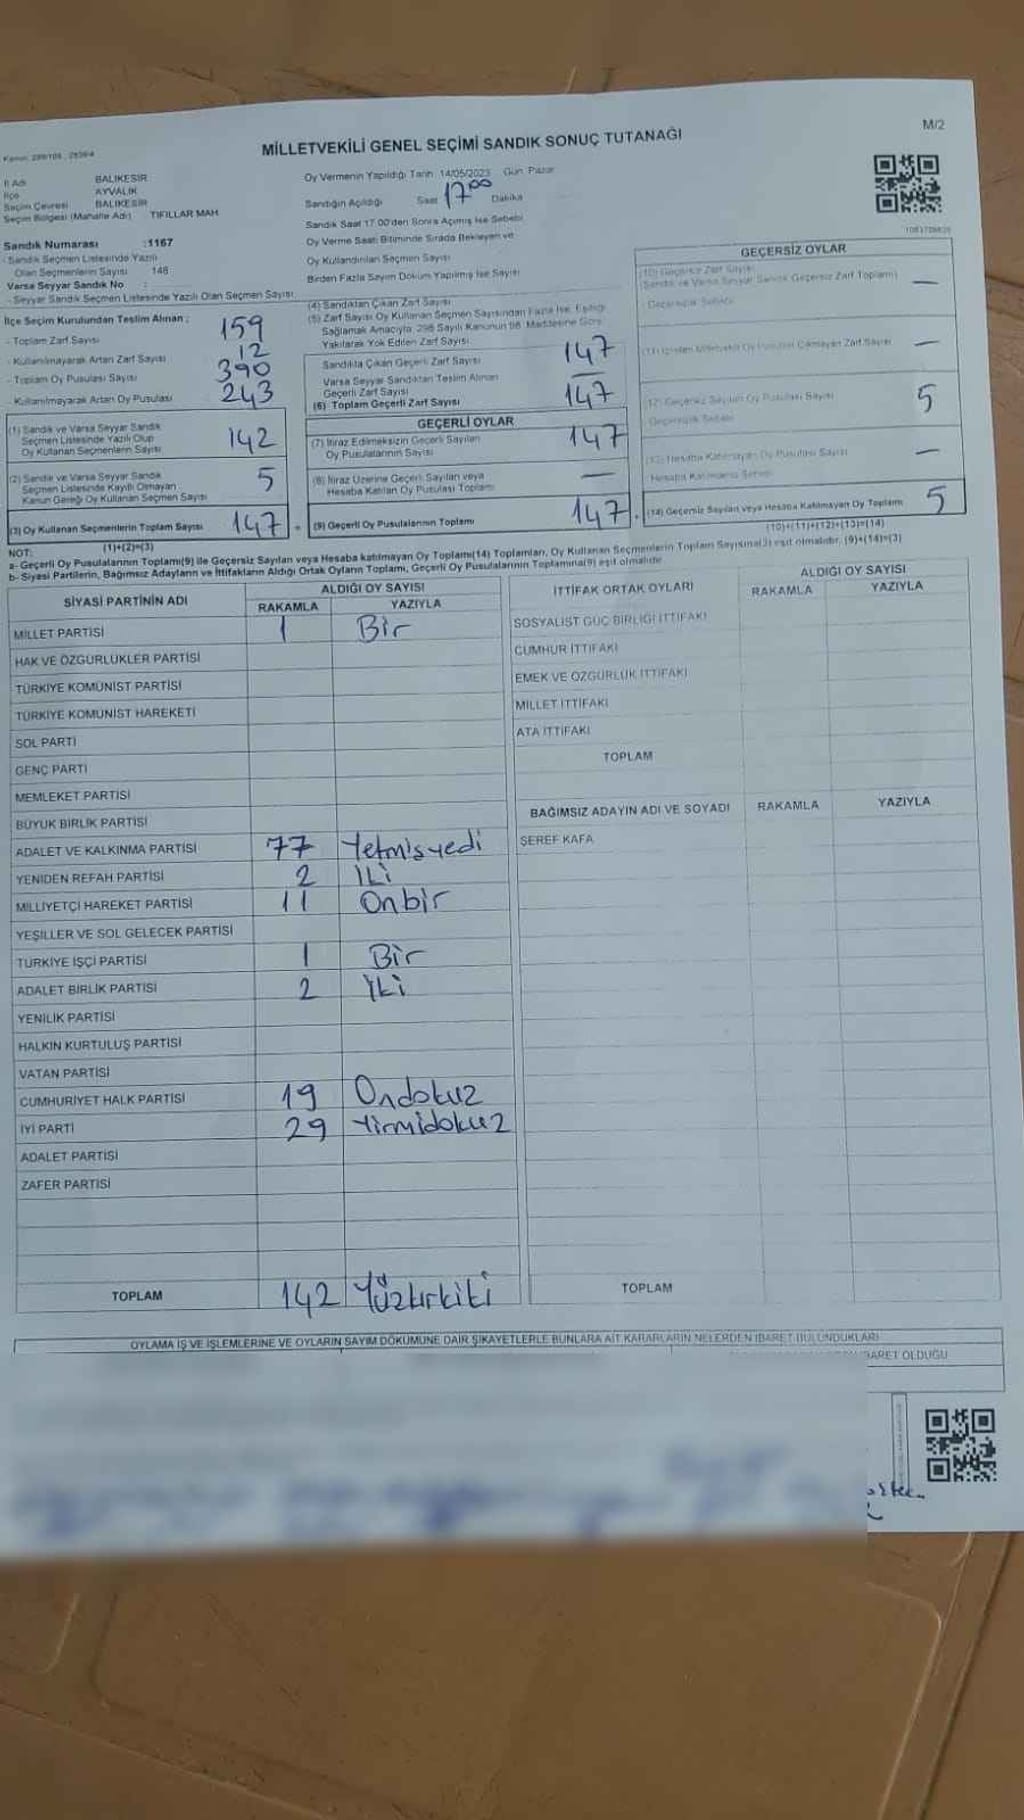 M/2
MİLLETVEKİLİ GENEL SEÇİMİ SANDIK SONUÇ TUTANAĞI
İl Adı BALIKESİR
İlçe AYVALIK
Seçim Çevresi BALIKESİR
Seçim Bölgesi (Mahalle Adı) TIFILLAR MAH
Sandık Numarası :1167
- Sandık Seçmen Listesinde Yazılı
Olan Seçmenlerin Sayısı 148
Varsa Seyyar Sandık No :
- Seyyar Sandık Seçmen Listesinde Yazılı Olan Seçmen Sayısı
Oy Vermenin Yapıldığı Tarih 14/05/2023 Gün Pazar
Sandığın Açıldığı Saat 17.00 Dakika
Sandık Saat 17.00'den Sonra Açımış İse Sebebi
Oy Verme Saati Bitiminde Sırada Bekleyen ve
Oy Kullandırılan Seçmen Sayısı
Birden Fazla Sayım Döküm Yapılmış İse Sayısı
İlçe Seçim Kurulundan Teslim Alınan ;
- Toplam Zarf Sayısı 159
- Kullanılmayarak Artan Zarf Sayısı 12
- Toplam Oy Pusulası Sayısı 390
- Kullanılmayarak Artan Oy Pusulası 243
(1) Sandık ve Varsa Seyyar Sandık
Seçmen Listesinde Yazılı Olup
Oy Kullanan Seçmenlerin Sayısı 142
(2) Sandık ve Varsa Seyyar Sandık
Seçmen Listesinde Kayıtlı Olmayan
Kanun Gereği Oy Kullanan Seçmen Sayısı 5
(3) Oy Kullanan Seçmenlerin Toplam Sayısı 147
(1)+(2)=(3)
(4) Sandıktan Çıkan Zarf Sayısı
(5) Zarf Sayısı Oy Kullanan Seçmen Sayısından Fazla İse, Eşitliği
Sağlamak Amacıyla, 298 Sayılı Kanunun 98. Maddesine Göre
Yakılarak Yok Edilen Zarf Sayısı
Sandıkta Çıkan Geçerli Zarf Sayısı 147
Varsa Seyyar Sandıktan Teslim Alınan
Geçerli Zarf Sayısı —
(6) Toplam Geçerli Zarf Sayısı 147
GEÇERLİ OYLAR
(7) İtiraz Edilmeksizin Geçerli Sayılan
Oy Pusulalarının Sayısı 147
(8) İtiraz Üzerine Geçerli Sayılan veya
Hesaba Katılan Oy Pusulası Toplamı —
(9) Geçerli Oy Pusulalarının Toplamı 147
GEÇERSİZ OYLAR
(10) Geçersiz Zarf Sayısı
(Sandık ve Varsa Seyyar Sandık Geçersiz Zarf Toplamı) —
—
(12) Geçersiz Sayılan Oy Pusulası Sayısı 5
(13) Hesaba Katılmayan Oy Pusulası Sayısı —
(14) Geçersiz Sayılan veya Hesaba Katılmayan Oy Toplamı 5
(10)+(11)+(12)+(13)=(14)
NOT:
a- Geçerli Oy Pusulalarının Toplamı(9) ile Geçersiz Sayılan veya Hesaba katılmayan Oy Toplamı(14) Toplamları, Oy Kullanan Seçmenlerin Toplam Sayısına(3) eşit olmalıdır. (9)+(14)=(3)
b- Siyasi Partilerin, Bağımsız Adayların ve İttifakların Aldığı Ortak Oyların Toplamı, Geçerli Oy Pusulalarının Toplamına(9) eşit olmalıdır.
SİYASİ PARTİNİN ADI ALDIĞI OY SAYISI
RAKAMLA YAZIYLA
MİLLET PARTİSİ 1 Bir
HAK VE ÖZGÜRLÜKLER PARTİSİ
TÜRKİYE KOMÜNİST PARTİSİ
TÜRKİYE KOMÜNİST HAREKETİ
SOL PARTİ
GENÇ PARTİ
MEMLEKET PARTİSİ
BÜYÜK BİRLİK PARTİSİ
ADALET VE KALKINMA PARTİSİ 77 Yetmişyedi
YENİDEN REFAH PARTİSİ 2 İki
MİLLİYETÇİ HAREKET PARTİSİ 11 Onbir
YEŞİLLER VE SOL GELECEK PARTİSİ
TÜRKİYE İŞÇİ PARTİSİ 1 Bir
ADALET BİRLİK PARTİSİ 2 İki
YENİLİK PARTİSİ
HALKIN KURTULUŞ PARTİSİ
VATAN PARTİSİ
CUMHURİYET HALK PARTİSİ 19 Ondokuz
İYİ PARTİ 29 Yirmidokuz
ADALET PARTİSİ
ZAFER PARTİSİ
TOPLAM 142 Yüzkırkiki
İTTİFAK ORTAK OYLARI ALDIĞI OY SAYISI
RAKAMLA YAZIYLA
SOSYALİST GÜÇ BİRLİĞİ İTTİFAKI
CUMHUR İTTİFAKI
EMEK VE ÖZGÜRLÜK İTTİFAKI
MİLLET İTTİFAKI
ATA İTTİFAKI
TOPLAM
BAĞIMSIZ ADAYIN ADI VE SOYADI RAKAMLA YAZIYLA
ŞEREF KAFA
TOPLAM
OYLAMA İŞ VE İŞLEMLERİNE VE OYLARIN SAYIM DÖKÜMÜNE DAİR ŞİKAYETLERLE BUNLARA AİT KARARLARIN NELERDEN İBARET BULUNDUKLARI
OLDUĞU